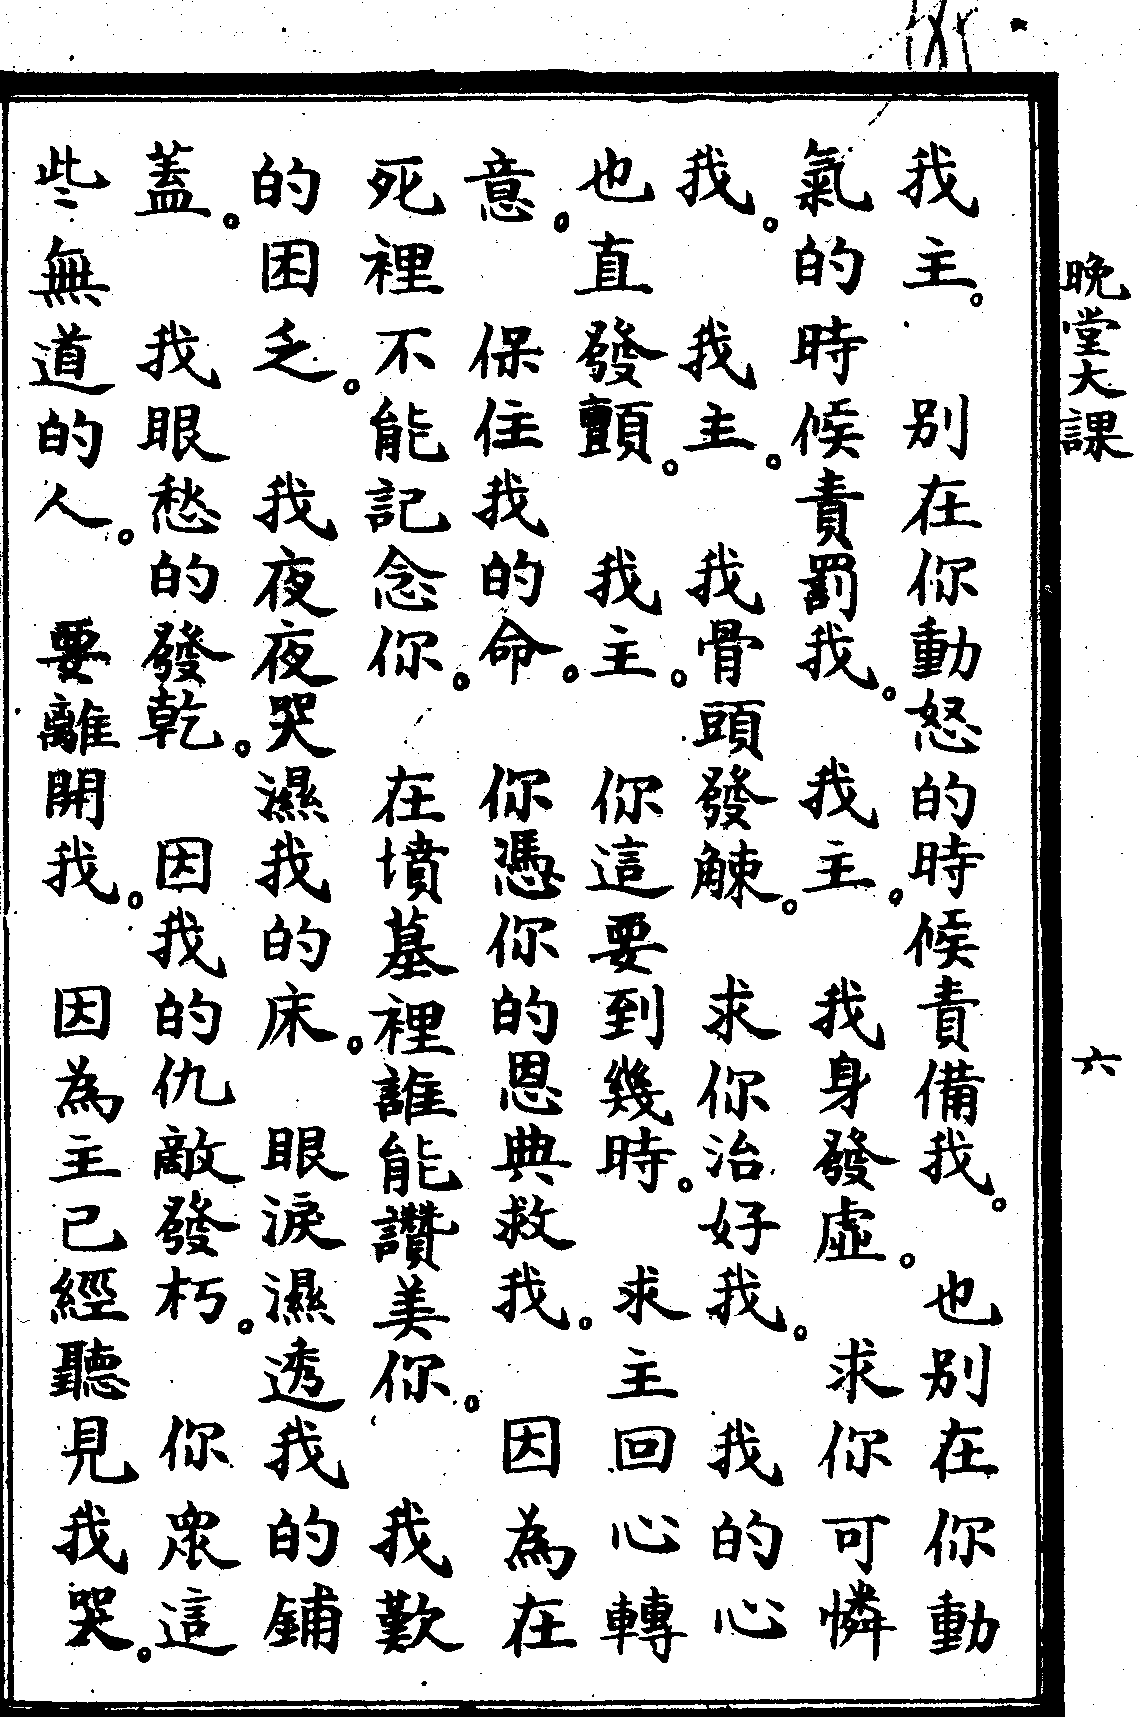 晚堂大課
六
我主。別在你動怒的時候責備我。也別在你動
氣的時候責罰我。我主。我身發虛。求你可憐
我。我主。我骨頭發觫。求你治好我。我的心
也直發顫。我主。你這要到幾時。求主回心轉
意。保住我的命。你憑你的恩典救我。因為在
死裡不能記念你。在墳墓裡誰能讚美你。我歎
的困乏。我夜夜哭濕我的床。眼淚濕透我的鋪
蓋。我眼愁的發乾。因我的仇敵發朽。你眾這
些無道的人。要離開我。因為主已經聽見我哭。